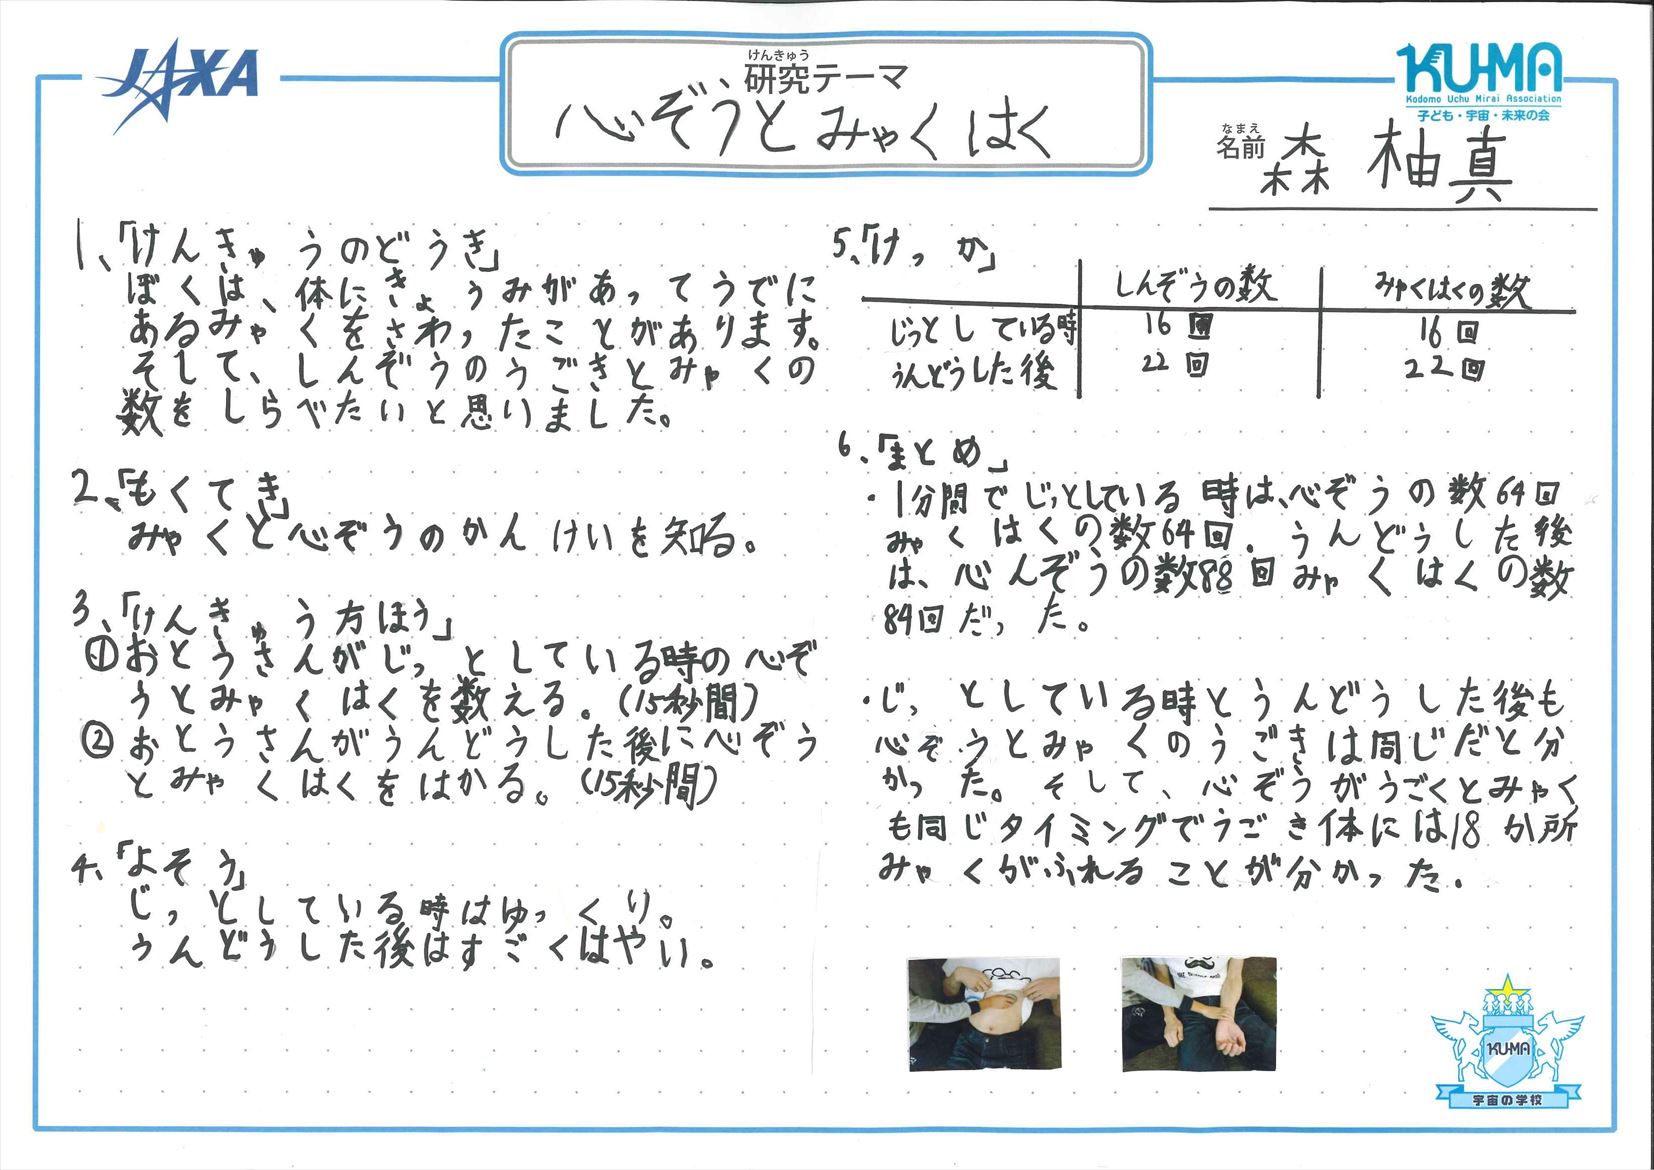 JAXA
けんきゅう
研究テーマ
心ぞうとみゃくはく
KU-MA
Kodomo Uchu Mirai Association
子ども・宇宙・未来の会
なまえ
名前 森 柚真
1、「けんきゅうのどうき」
ぼくは、体にきょうみがあってうでに
あるみゃくをさわったことがあります。
そして、しんぞうのうごきとみゃくの
数をしらべたいと思いました。
2、「もくてき」
みゃくと心ぞうのかんけいを知る。
3、「けんきゅう方ほう」
①おとうさんがじっとしている時の心ぞ
うとみゃくはくを数える。(15秒間)
②おとうさんがうんどうした後に心ぞう
とみゃくはくをはかる。(15秒間)
4、「よそう」
じっとしている時はゆっくり。
うんどうした後はすごくはやい。
5、「けっか」
しんぞうの数 みゃくはくの数
じっとしている時 16回 16回
うんどうした後 22回 22回
6、「まとめ」
・1分間でじっとしている時は、心ぞうの数64回
みゃくはくの数64回. うんどうした後
は、心んぞうの数88回みゃくはくの数
84回だった。
・じっとしている時とうんどうした後も
心ぞうとみゃくのうごきは同じだと分
かった。そして、心ぞうがうごくとみゃく
も同じタイミングでうごき体には18か所
みゃくがふれることが分かった.
KU-MA
宇宙の学校